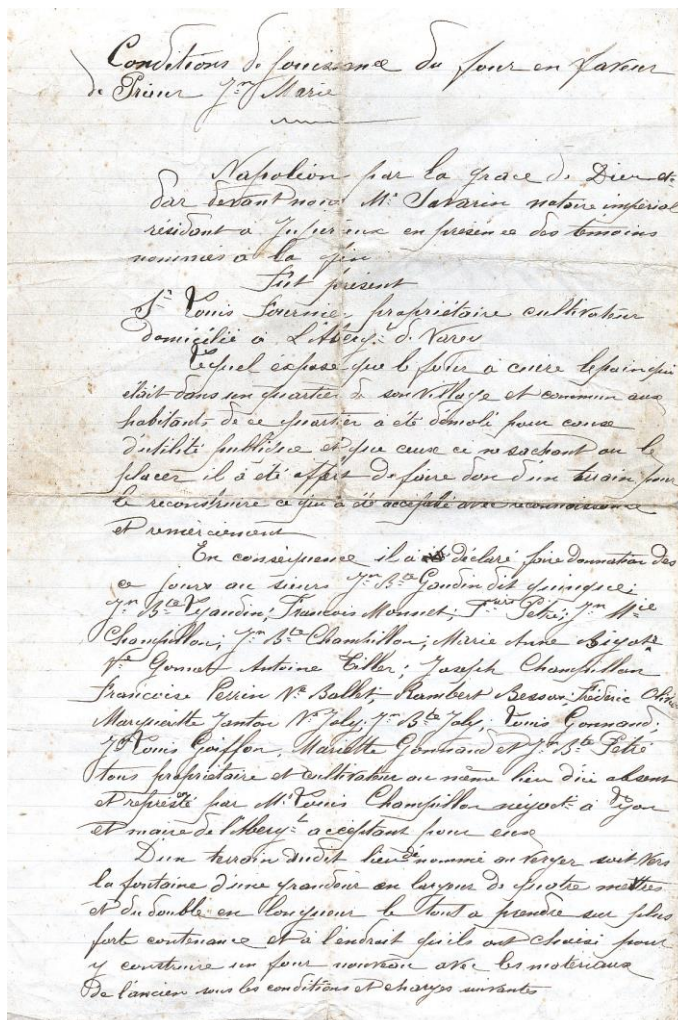 Conditions de jouissance du four en faveur
de Prieur Jn Marie
Napoléon par la grace de Dieu etc
par devant nous Me Savarin notaire impérial
résidant a Jujurieux en présence des temoins
nommés a la fin
Fut présent
Sr Louis Fournier propriétaire cultivateur
domicilié a L'Aberg.t de Varey
lequel éxpose que le four à cuire le pain qui
était dans un quartier de son village et commun aux
habitants de ce quartier a été démoli pour cause
d'utilité publique et que ceux ci ne sachant ou le
placer il à été offert de faire don d'un terrain pour
le reconstruire ce qui a été accepté avec reconnaissance
et remerciement
En conséquence il a déclaré faire donnation des
ce jours au sieurs Jn Bte Gaudin dit quinque;
Jn Bte Gaudin; Francois Monnet; Petre; Jn Mie
Champillon; Jn Bte Champillon; Marie Anne
Ve Gomet Antoine Tiller; Joseph Champillon
Francoise Perrin Ve Ballet; Rambert Besson; Frédéric
Marguerite Janton Ve Joly; Jn Bte Joly; Louis Gonnand;
Louis Goiffon, Mariette Gonnand et Jn Bte Petre
tous propriétaire et cultivateur au même lieu d'ici absent
et représté par Mr Louis Champillon negoct a Lyon
et maire de l'Aberg.t acceptant pour eux
D'un terrain dudit lieu nommé au verger soit vers
la fontaine d'une grandeur en largeur de quatre mettres
et du double en longueur le tout a prendre sur plus
forte contenance et à l'endroit qu'ils ont choisi pour
y construire un four nouveau avec les materiaux
de l'ancien sous les conditions et charges suivantes